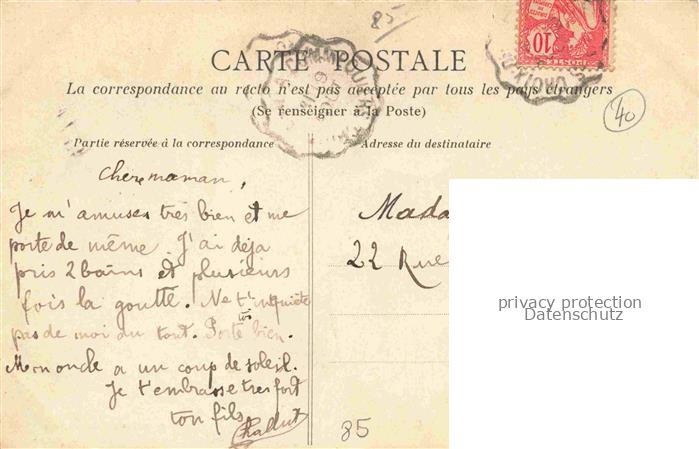 85
CARTE POSTALE
La correspondance au recto n'est pas acceptée par tous les pays étrangers
(Se renseigner à la Poste)
40
Partie réservée à la correspondance
Adresse du destinataire
Chere maman,
Je m'amuse très bien et me
porte de même. J'ai déja
pris 2 bains et plusieurs
fois la goutte. Ne t'inquiète
pas de moi du tout. Porte toi bien.
Mon oncle a un coup de soleil.
Je t'embrasse tres fort
ton fils
Mada
22 Rue
85
10
POSTES
privacy protection
Datenschutz